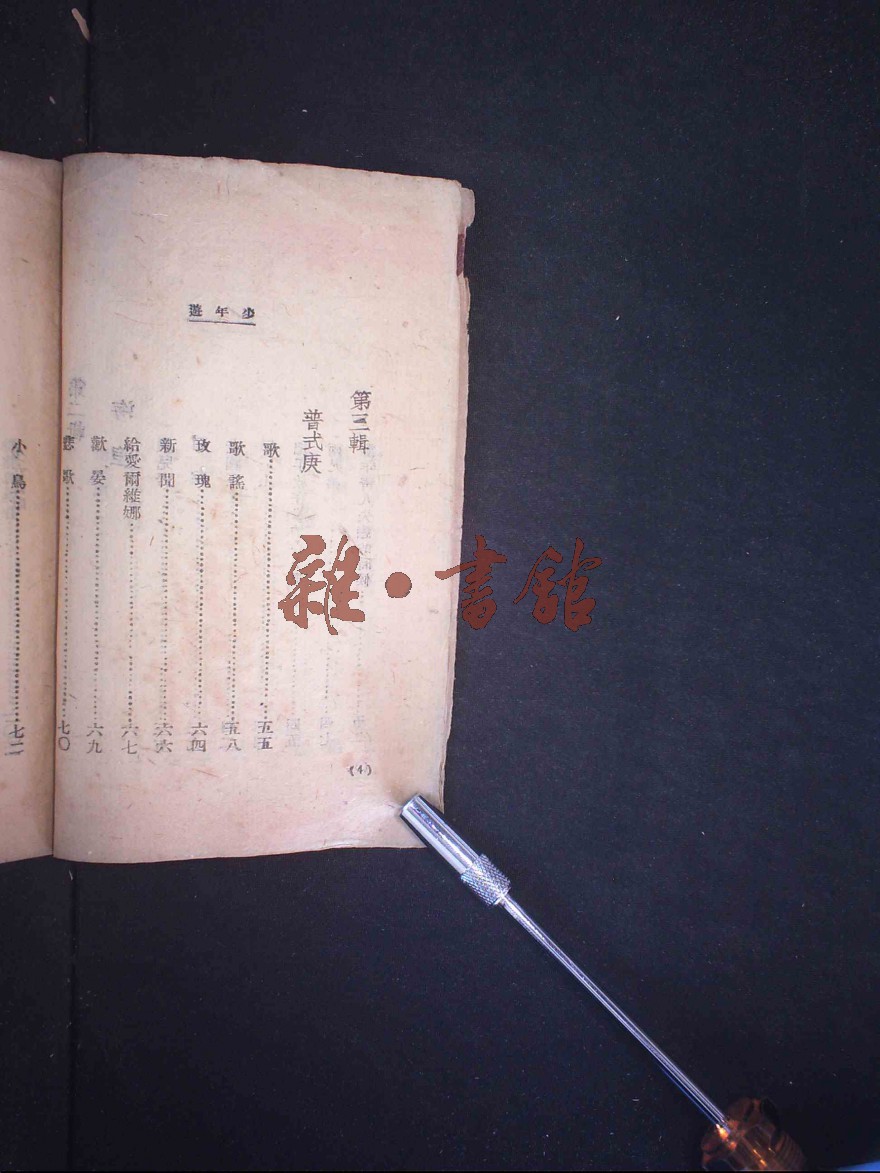 少年遊
第三輯
普式庚
歌……五五
歌謠……五八
玫瑰……六四
新聞……六六
給愛爾維娜……六七
歡晏……六九
悲歌……七〇
小鳥……七二
(4)
雜·書館